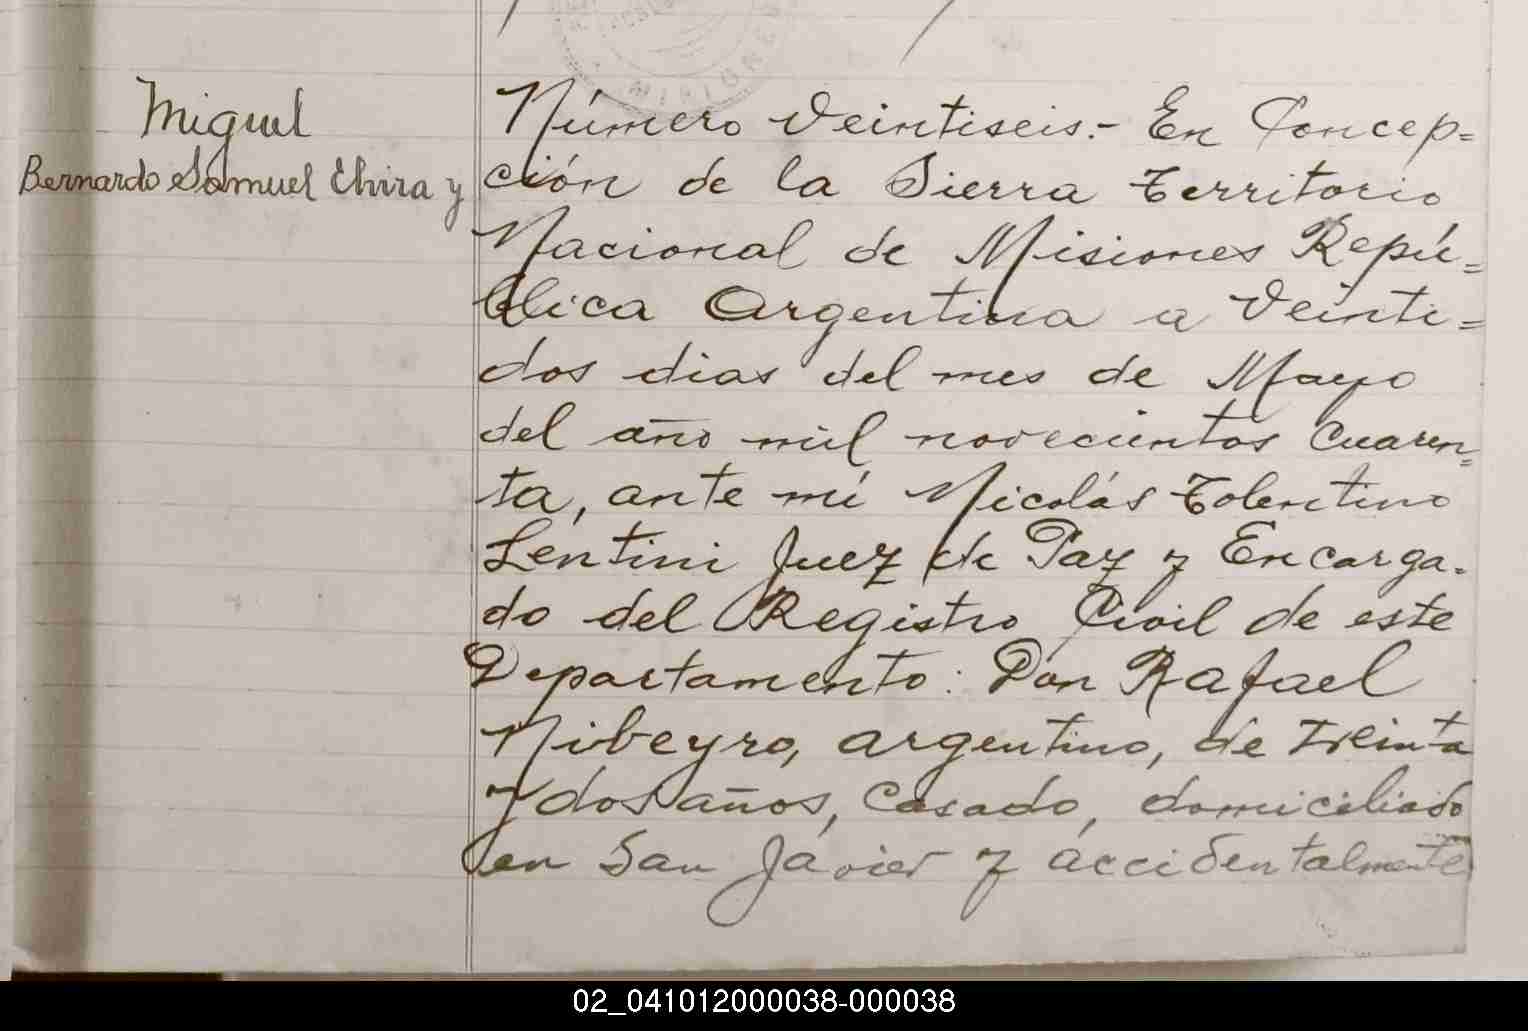 MISIONES
Miguel
Bernardo Samuel Elvira y
Número Veintiseis.- En Concep=
ción de la Sierra Territorio
Nacional de Misiones Repú=
blica Argentina a Veinti=
dos dias del mes de Mayo
del año mil novecientos cuaren=
ta, ante mí Nicolás Tolentino
Lentini Juez de Paz y Encarga-
do del Registro Civil de este
Departamento: Don Rafael
Nibeyro, argentino, de treinta
y dos años, casado, domiciliado
en San Javier y accidentalmente
02_041012000038-000038